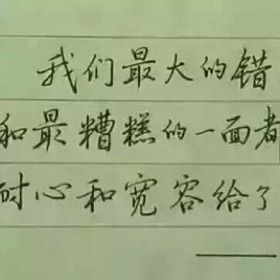 我们最大的错
和最糟糕的一面都
耐心和宽容给了